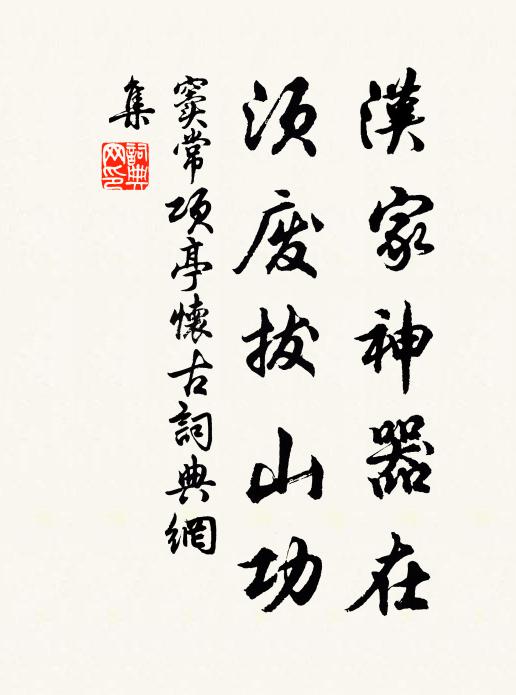 漢家神器在
須廢拔山功
竇常項亭懷古詞典網
集
詞典网印